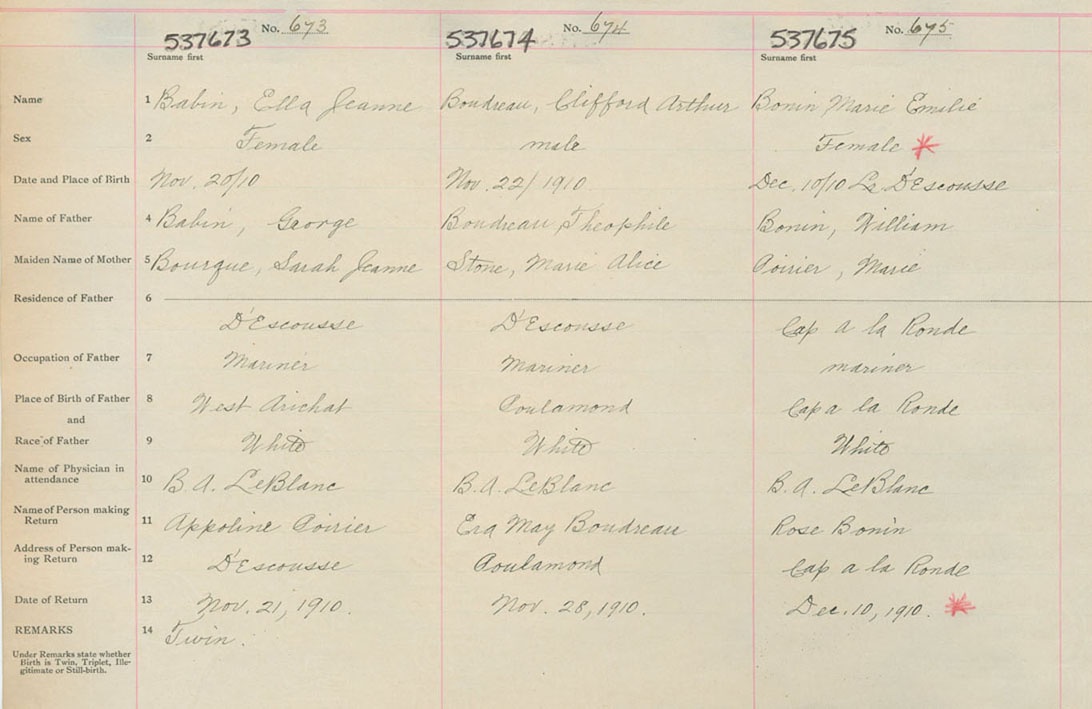 No. 673 No. 674 No. 675
537673 537674 537675
Surname first Surname first Surname first
Name 1 Babin, Ella Jeanne Boudreau, Clifford Arthur Bonin Marie Emilie
Sex 2 Female male Female
Date and Place of Birth Nov. 20/10 Nov. 22/1910. Dec. 10/10 Le D'Escousse
Name of Father 4 Babin, George Boudreau, Theophile Bonin, William
Maiden Name of Mother 5 Bourque, Sarah Jeanne Stone, Marie Alice Poirier, Marie
Residence of Father 6
D'Escousse D'Escousse Cap a la Ronde
Occupation of Father 7 Mariner Mariner mariner
Place of Birth of Father 8 West Arichat Poulamond Cap a la Ronde
and
Race of Father 9 White White White
Name of Physician in
attendance 10 B. A. LeBlanc B. A. LeBlanc B. A. LeBlanc
Name of Person making
Return 11 Appoline Poirier May Boudreau Rose Bonin
Address of Person mak-
ing Return 12 D'Escousse Poulamond Cap a la Ronde
Date of Return 13 Nov. 21, 1910. Nov. 28, 1910. Dec. 10, 1910.
REMARKS 14 Twin.
Under Remarks state whether
Birth is Twin, Triplet, Ille-
gitimate or Still-birth.